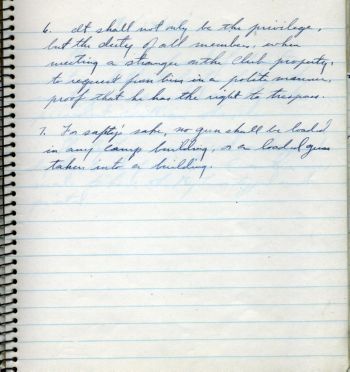 6. It shall not only be the privilege,
but the duty of all members, when
meeting a stranger on the Club property,
to request from him in a polite manner,
proof that he has the right to trespass.
7. For safty's sake, no gun shall be loaded
in any camp building, or a loaded gun
taken into a building.